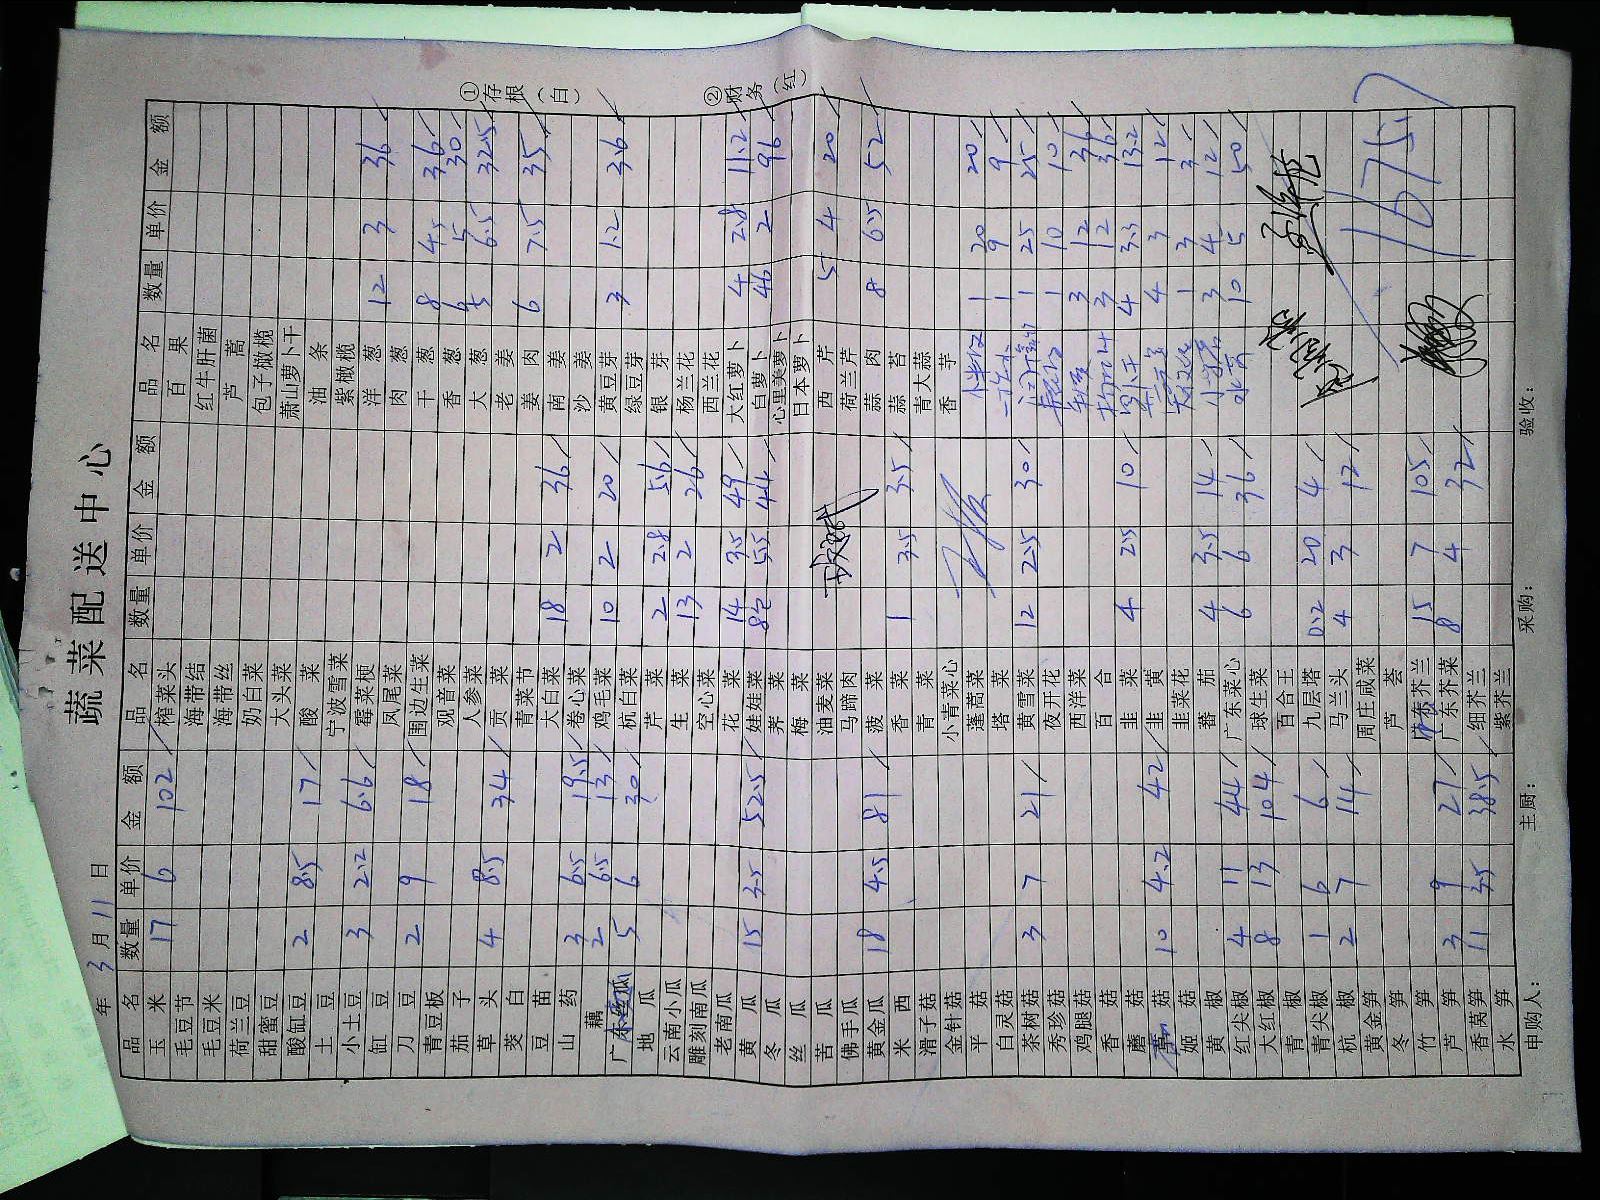 蔬菜配送中心
年 3 月 11 日
品名 数量 单价 金额 品名 数量 单价 金额 品名 数量 单价 金额
玉米 17 6 102 榨菜头 百果
毛豆节 海带结 红牛肝菌
毛豆米 海带丝 芦蒿
荷兰豆 奶白菜 包子橄榄
甜蜜豆 大头菜 萧山萝卜干
酸缸豆 2 8.5 17 酸菜 油条
土豆 宁波雪菜 紫橄榄
小土豆 3 2.2 6.6 霉菜梗 洋葱 12 3 36
缸豆 凤尾菜 肉葱
刀豆 2 9 18 围边生菜 干葱 8 4.5 36
青豆板 观音菜 香葱 6 5 30
茄子 人参菜 大葱 5 6.5 32.5
草头 4 8.5 34 贡菜 老姜
茭白 青菜节 姜肉 6 7.5 35
豆苗 大白菜 18 2 36 南姜
山药 3 6.5 19.5 卷心菜 沙姜
藕 2 6.5 13 鸡毛菜 10 2 20 黄豆芽 3 1.2 3.6
广东丝瓜 5 6 30 杭白菜 绿豆芽
地瓜 芹菜 2 2.8 5.6 银芽
云南小瓜 生菜 13 2 26 杨兰花
雕刻南瓜 空心菜 西兰花
老南瓜 花菜 14 3.5 49 大红萝卜 4 2.8 11.2
黄瓜 15 3.5 52.5 娃娃菜 8包 5.5 44 白萝卜 2 96
冬瓜 荠菜 心里美萝卜
丝瓜 梅菜 日本萝卜
苦瓜 油麦菜 西芹 5 4 20
佛手瓜 马蹄肉 荷兰芹
黄金瓜 18 4.5 81 菠菜 蒜肉 8 6.5 52
米西 香菜 1 3.5 3.5 蒜苔
滑子菇 青菜 青大蒜
金针菇 小青菜心 香芋
平菇 蓬蒿菜 1 20 20
白灵菇 塔菜 1 9 9
茶树菇 3 7 21 黄雪菜 12 2.5 30 1 25 25
秀珍菇 夜开花 1 10 10
鸡腿菇 西洋菜 3 12 36
香菇 百合 3 12 36
蘑菇 韭菜 4 2.5 10 4 3.3 13.2
草菇 10 4.2 42 韭黄 4 3 12
姬菇 韭菜花 1 3 3
黄椒 蕃茄 4 3.5 14 3 4 12
红尖椒 4 11 44 广东菜心 6 6 36 10 5 50
大红椒 8 13 104 球生菜
青椒 百合王
青尖椒 1 6 6 九层塔 0.2 20 4
杭椒 2 7 14 马兰头 4 3 12
黄金笋 周庄咸菜
冬笋 芦荟
竹笋 广东芥兰 15 7 105
芦笋 3 9 27 广东芥菜 8 4 32
香莴笋 11 3.5 38.5 细芥兰
水笋 紫芥兰
1675.-
申购人： 主厨： 采购： 验收：
①存根（白）
②财务（红）